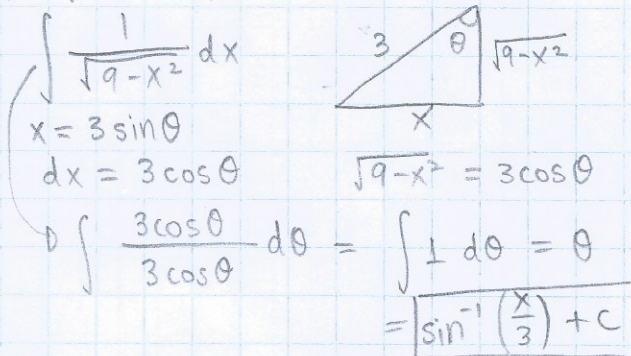 ∫ 1/√(9-x²) dx
3 θ √(9-x²)
x
x = 3 sinθ
dx = 3 cosθ √(9-x²) = 3 cosθ
∫ 3cosθ/3cosθ dθ = ∫ 1 dθ = θ
= sin⁻¹(x/3) + C